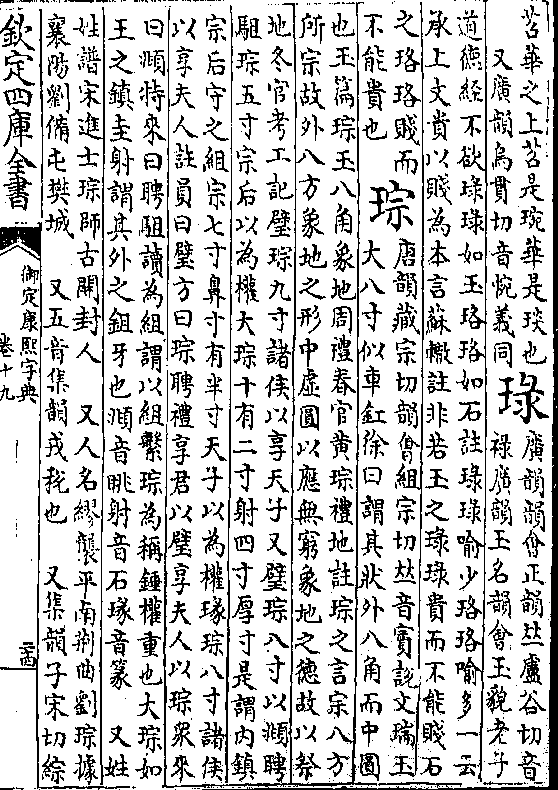 苕華之上苕是琬華是琰也
又廣韻烏貫切音惋義同
琭
廣韻韻會正韻𠀤盧谷切音
祿廣韻玉名韻會玉貌老子
道德經不欲琭琭如玉珞珞如石註琭琭喻少珞珞喻多一云
承上文貴以賤為本言蘇轍註非若玉之琭琭貴而不能賤石
之珞珞賤而
不能貴也
琮
唐韻藏宗切韻會組宗切𠀤音賨說文瑞玉
大八寸似車釭徐曰謂其狀外八角而中圓
也玉篇琮玉八角象地周禮春官黃琮禮地註琮之言宗八方
所宗故外八方象地之形中虛圓以應無窮象地之德故以祭
地冬官考工記璧琮九寸諸侯以享天子又璧琮八寸以頫聘
駔琮五寸宗后以為權大琮十有二寸射四寸厚寸是謂內鎮
宗后守之組宗七寸鼻寸有半寸天子以為權瑑琮八寸諸侯
以享夫人註員曰璧方曰琮聘禮享君以璧享夫人以琮衆來
曰頫特來曰聘駔讀為組謂以組繫琮為稱錘權重也大琮如
王之鎮圭射謂其外之鉏牙也頫音眺射音石瑑音篆　又姓
姓譜宋進士琮師古開封人　又人名繆襲平南荆曲劉琮據
襄陽劉備屯樊城　又五音集韻戎我也　又集韻子宋切綜
欽定四庫全書
御定康熙字典
卷十九